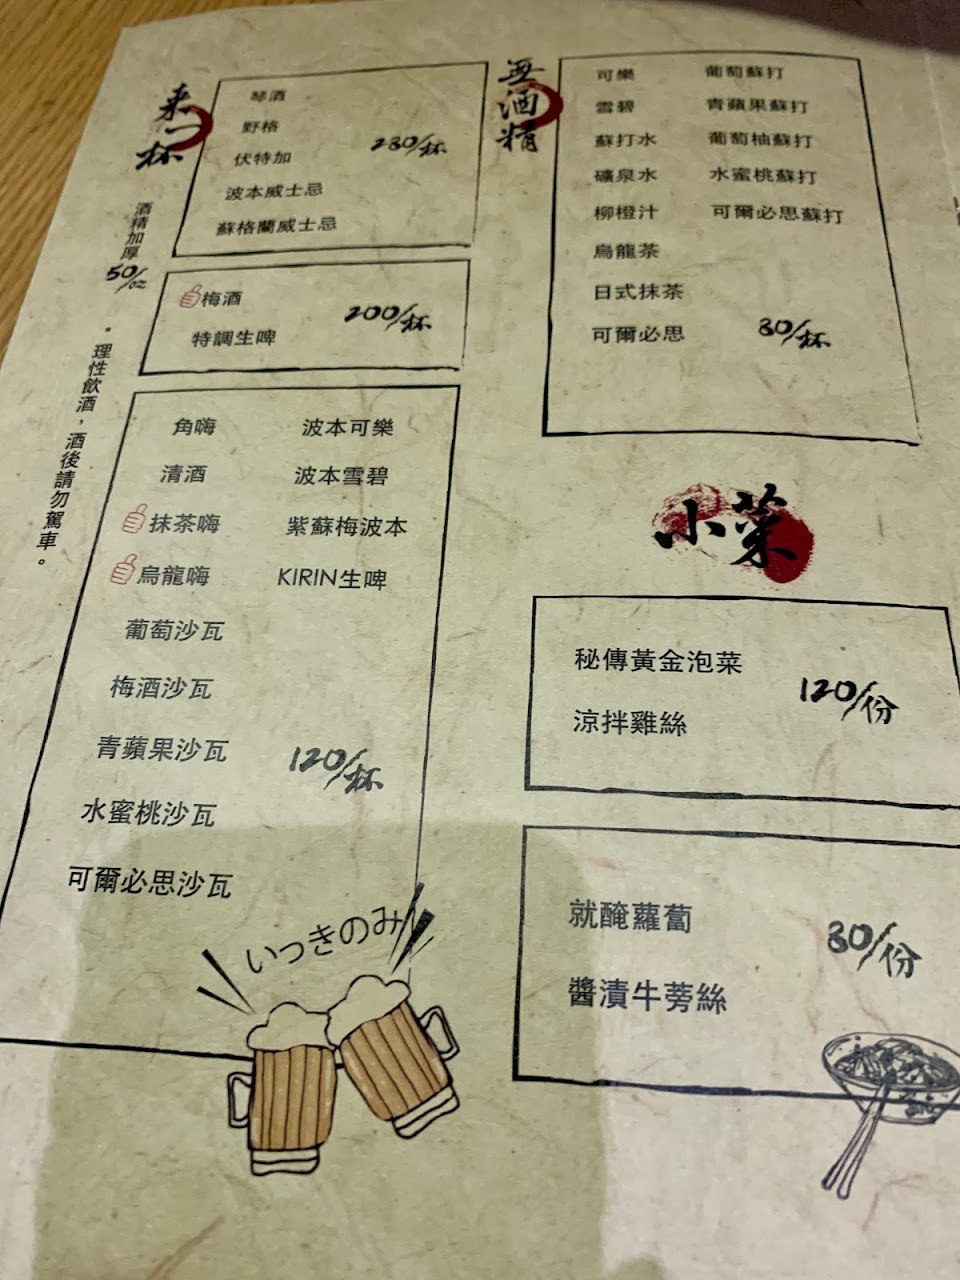 来一杯
酒精加厚
50/oz
琴酒
野格
伏特加
波本威士忌
蘇格蘭威士忌
280/杯
梅酒
特調生啤
200/杯
• 理性飲酒，酒後請勿駕車。
角嗨 波本可樂
清酒 波本雪碧
抹茶嗨 紫蘇梅波本
烏龍嗨 KIRIN生啤
葡萄沙瓦
梅酒沙瓦
青蘋果沙瓦
水蜜桃沙瓦
可爾必思沙瓦
120/杯
いっきのみ
無酒精
可樂 葡萄蘇打
雪碧 青蘋果蘇打
蘇打水 葡萄柚蘇打
礦泉水 水蜜桃蘇打
柳橙汁 可爾必思蘇打
烏龍茶
日式抹茶
可爾必思
80/杯
小菜
秘傳黃金泡菜
涼拌雞絲
120/份
就醃蘿蔔
醬漬牛蒡絲
80/份